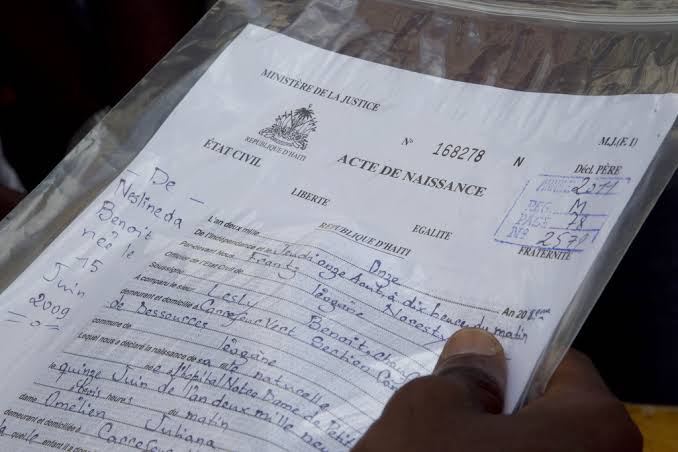 MINISTÈRE DE LA JUSTICE
N° 168278 N
M.J.(E. I)
RÉPUBLIQUE D'HAITI
ÉTAT CIVIL
ACTE DE NAISSANCE
Décl. PÈRE
LIBERTE
EGALITE
FRATERNITE
RÉPUBLIQUE D'HAITI
2011
REG. M
PAGE 78
No 2578
- De -
Neslineda
Benoit
neé le
15
Juin
2009
L'an deux mille Onze An 208eme
De l'indépendance et le Jeudi onze Août à dix heures du matin
Pardevant Nous Frantz Narcisty
Officier de l'État Civil de Léogâne
Soussigné
A comparu le sieur Lesly Benoit
demeurant et domicilié à Carrefour Vert Section
de Dessources
commune de Léogane
Lequel nous a déclaré la naissance de sa naturelle
e a l'hôpital Notre Dame de
le quinze Juin de l'an deux mille neuf
trois heures du matin
dame Amélien Juliana
demeurant et domiciliée à